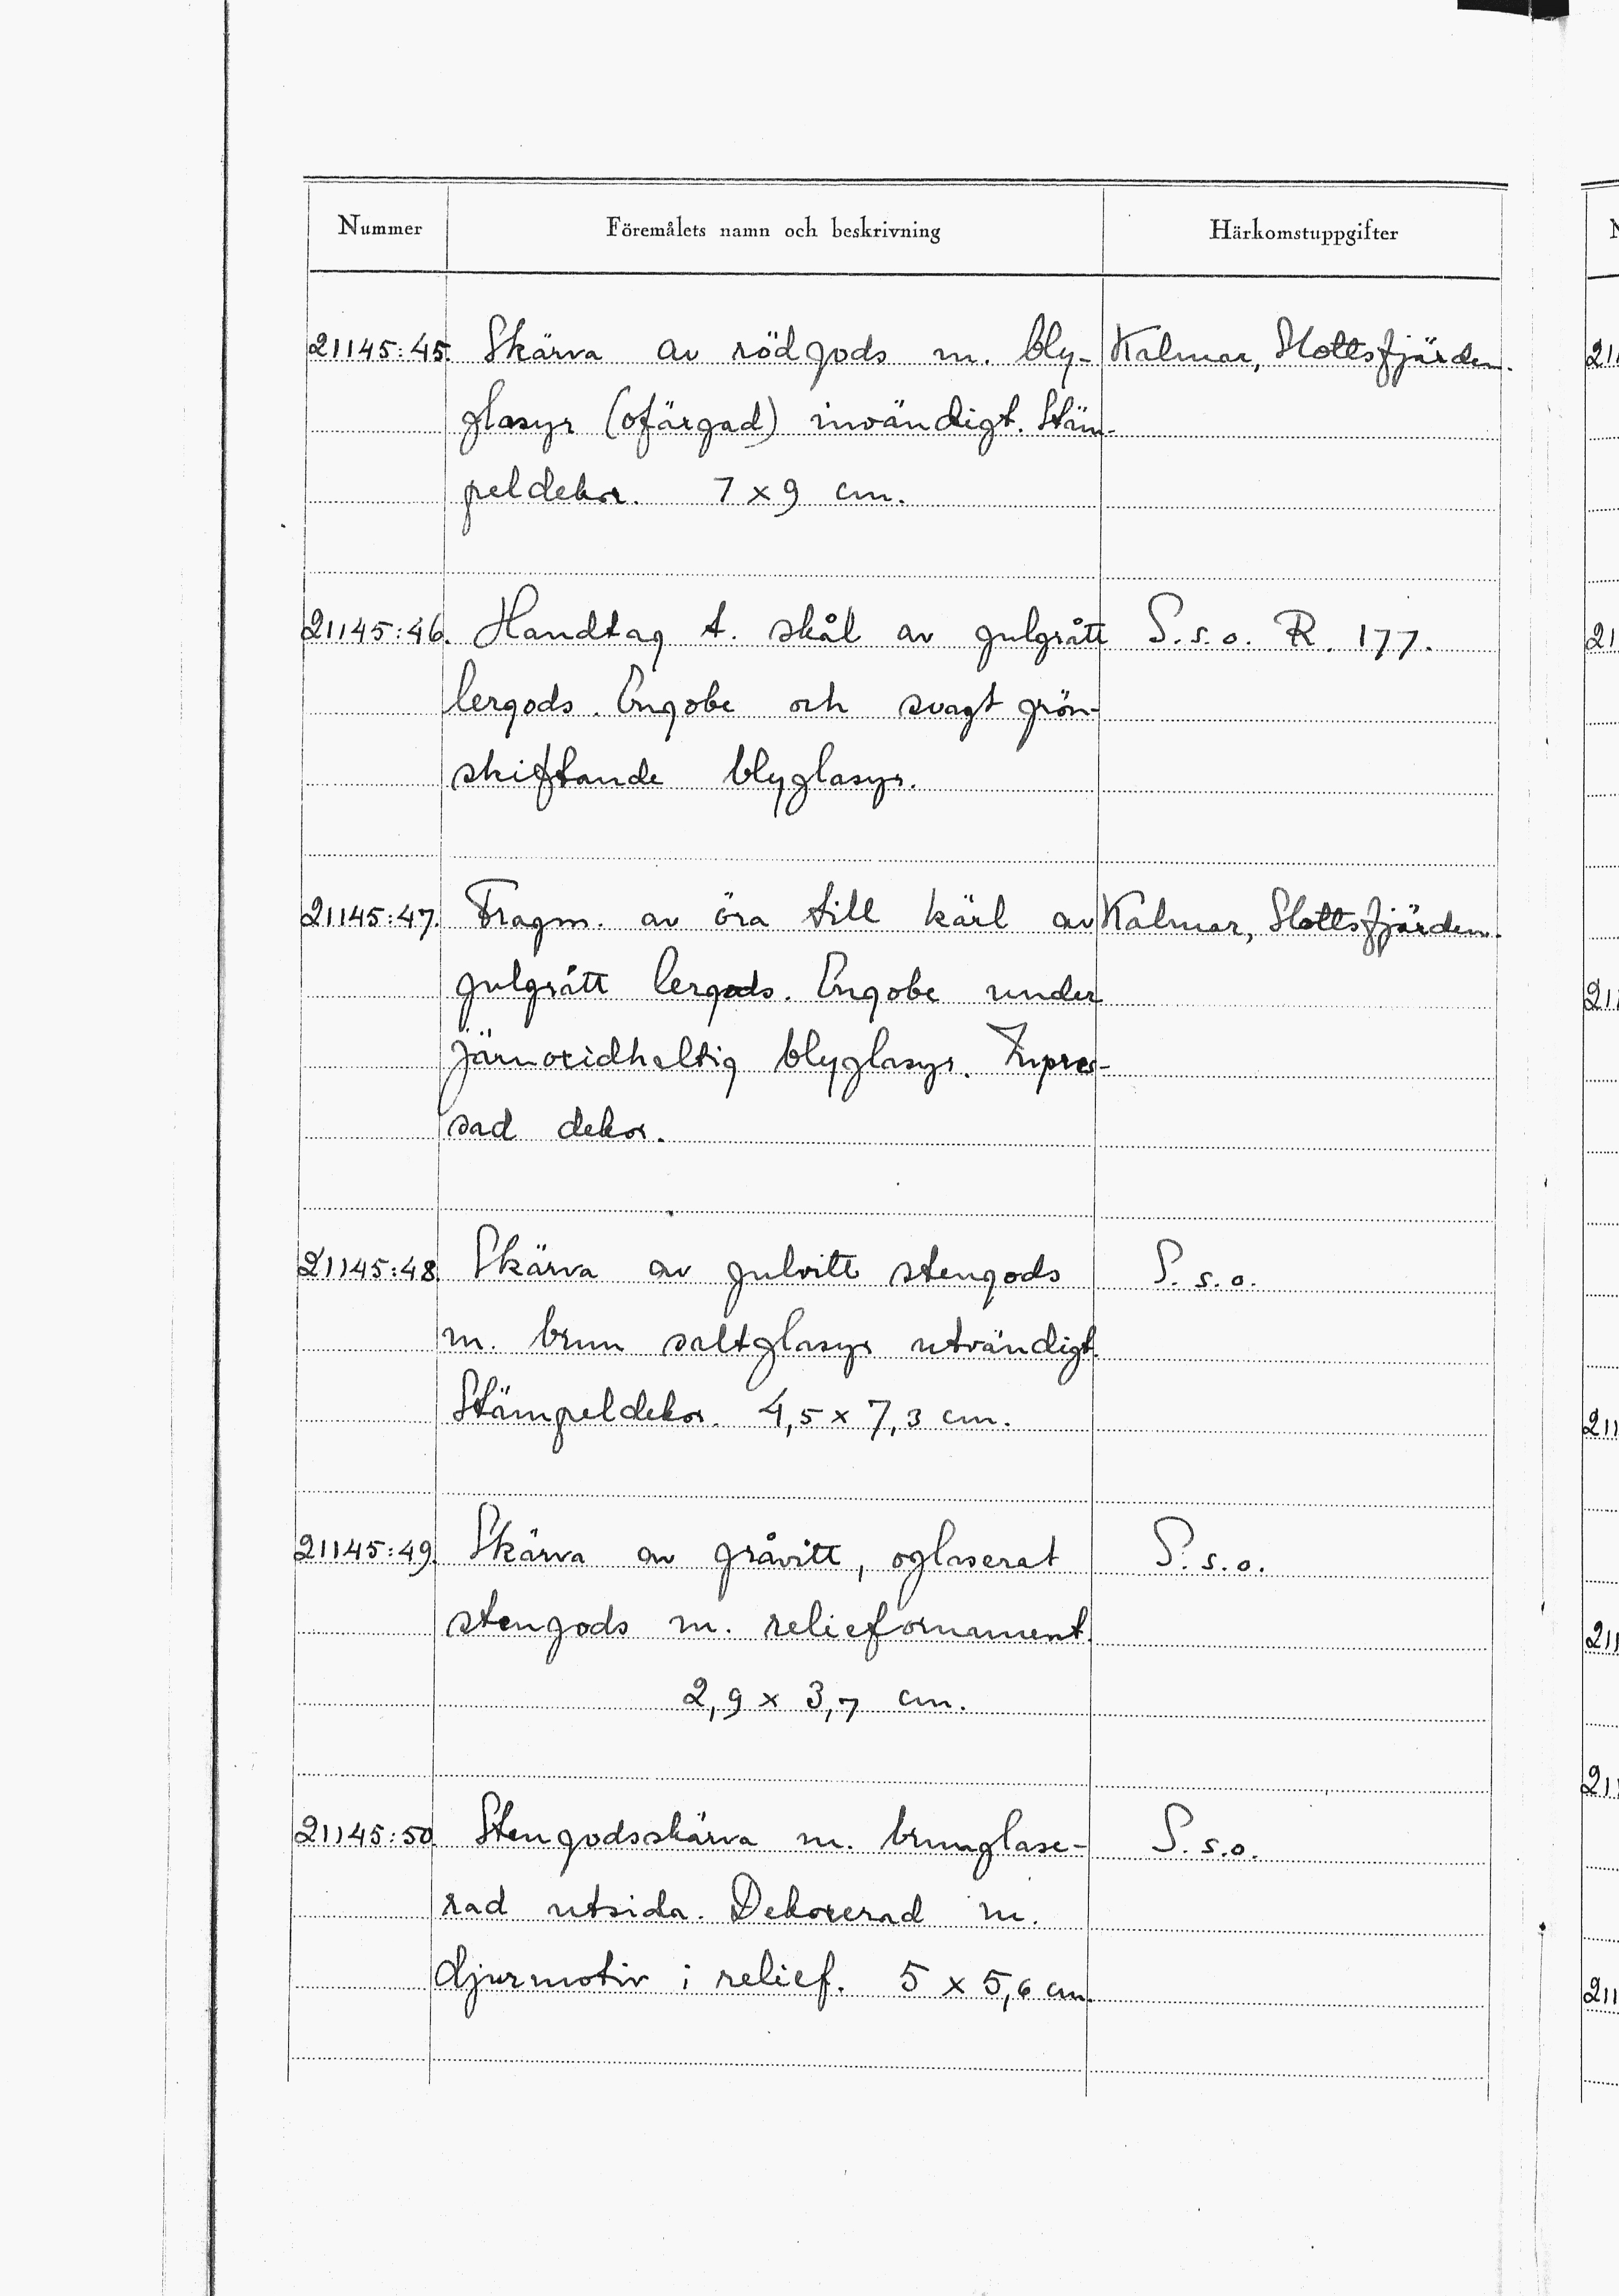 Nummer Föremålets namn och beskrivning Härkomstuppgifter
21145:45. Skärva av rödgods m. bly- Kalmar, Slottsfjärden.
glasyr (ofärgad) invändigt. Stäm-
peldekor. 7 x 9 cm.
21145:46. Handtag t. skål av gulgrått S.s.o. R. 177.
lergods. Engobe och svagt grön-
skiftande blyglasyr.
21145:47. Fragm. av öra till kärl av Kalmar, Slottsfjärden.
gulgrått lergods. Engobe under
järnoxidhaltig blyglasyr. Inpres-
sad dekor.
21145:48. Skärva av gulvitt stengods S.s.o.
m. brun saltglasyr utvändigt.
Stämpeldekor. 4,5 x 7,3 cm.
21145:49. Skärva av gråvitt, oglaserat S.s.o.
stengods m. reliefornament.
2,9 x 3,7 cm.
21145:50. Stengodsskärva m. brunglase- S.s.o.
rad utsida. Dekorerad m.
djurmotiv i relief. 5 x 5,6 cm.